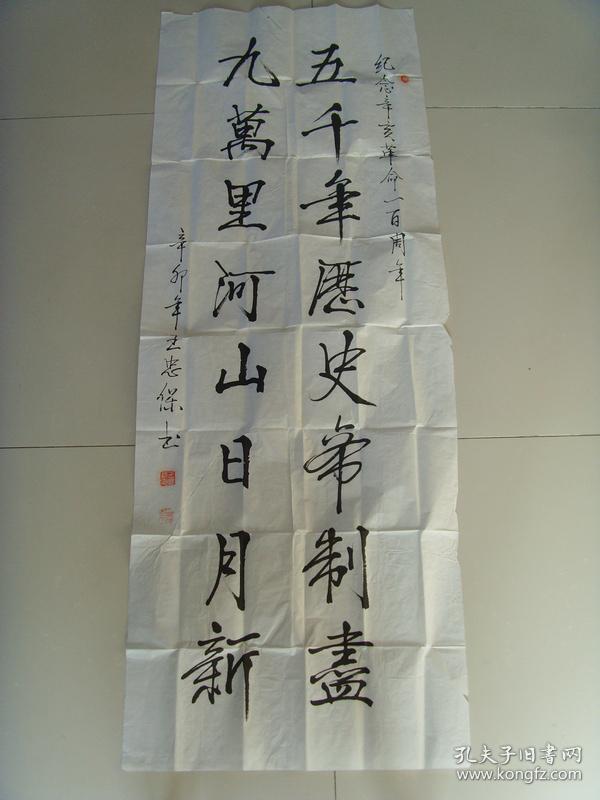 纪念辛亥革命一百周年
五千年歷史帝制盡
九萬里河山日月新
辛卯年王忠保书
孔夫子旧書网
www.kongfz.com